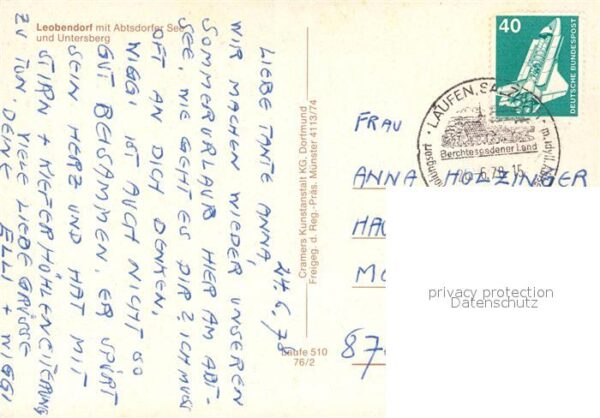 Leobendorf mit Abtsdorfer See
und Untersberg
24.6.78
LIEBE TANTE ANNA,
WIR MACHEN WIEDER UNSEREN
SOMMERURLAUB HIER AM ABT-
SEE, WIE GEHT ES DIR? ICH MUSS
OFT AN DICH DENKEN,
WIGGI IST AUCH NICHT SO
GUT BEISAMMEN. ER SPÜRT
SEIN HERZ UND HAT MIT
STIRN + KIEFERHÖHLENEITERUNG
ZU TUN. VIELE LIEBE GRÜSSE
DEINE ELLI + WIGGI
Cramers Kunstanstalt KG, Dortmund
Freigeg. d. Reg.-Präs. Münster 4113/74
Laufe 510
76/2
40
DEUTSCHE BUNDESPOST
LAUFEN, SALZACH
Berchtesgadener Land
6.78-15
FRAU
ANNA HOLZINGER
HAU
MO
870
privacy protection
Datenschutz